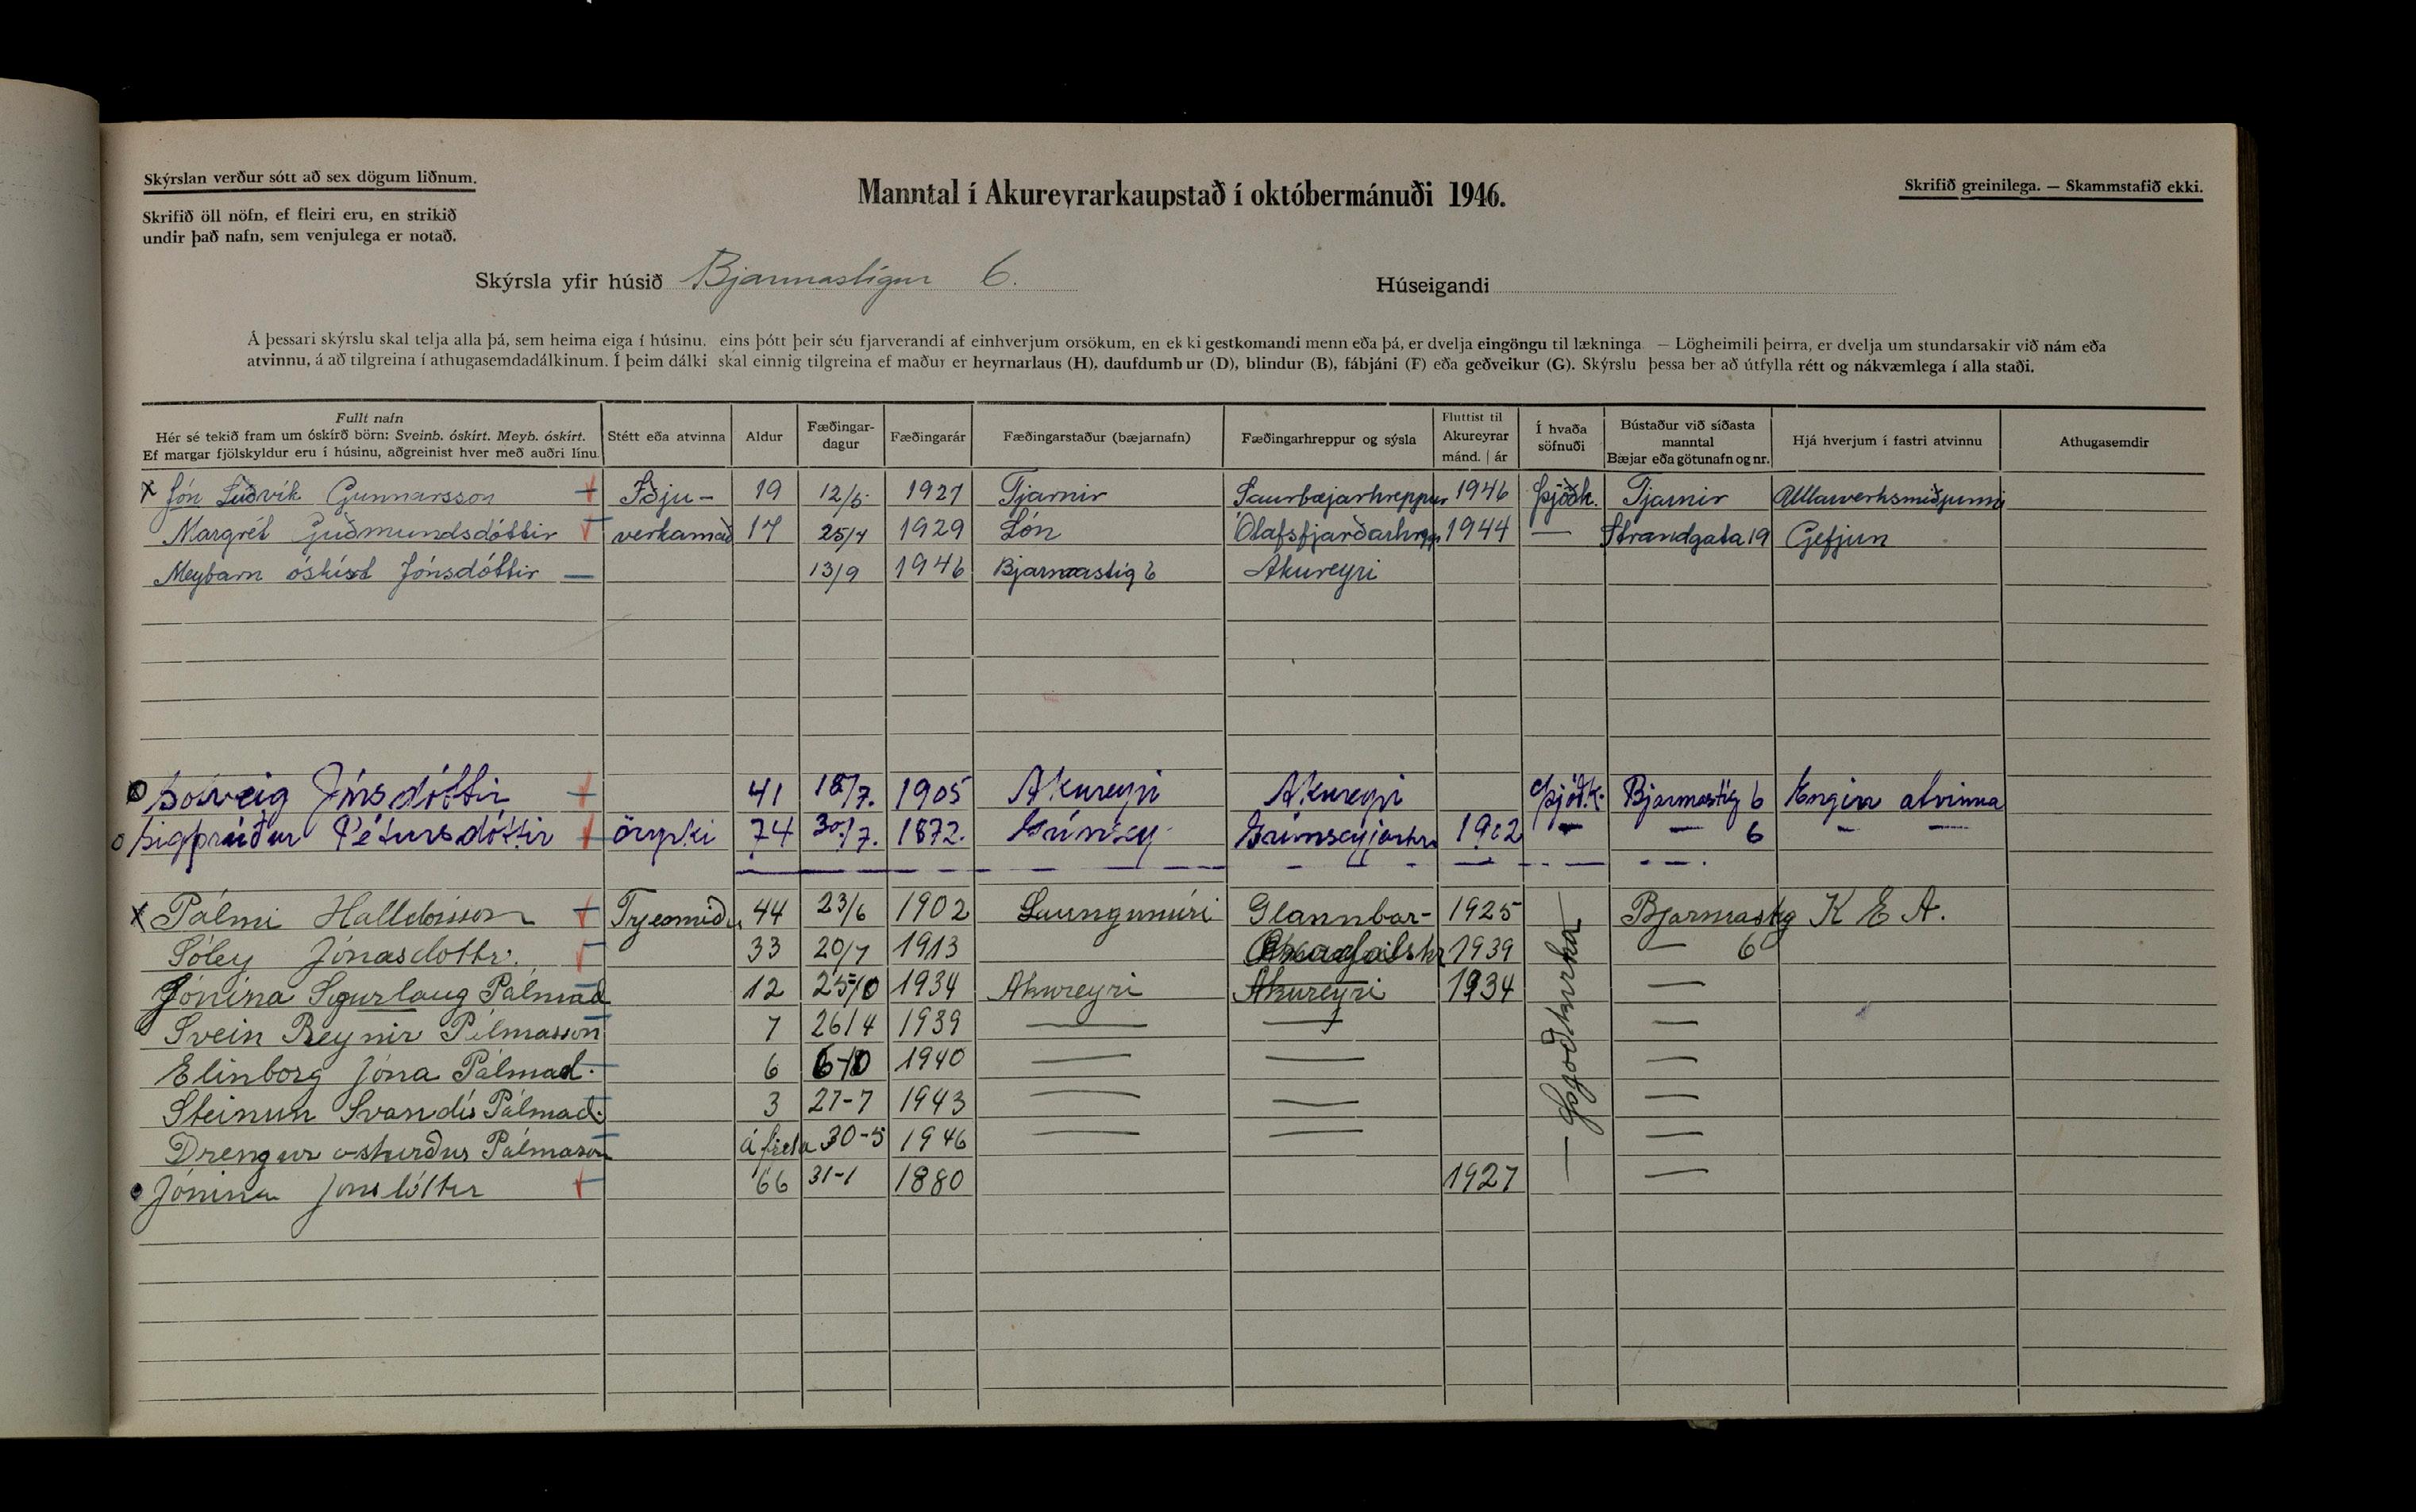 Skýrslan verður sótt að sex dögum liðnum.
Skrifið öll nöfn, ef fleiri eru, en strikið
undir það nafn, sem venjulega er notað.
Manntal í Akureyrarkaupstað í októbermánuði 1946.
Skrifið greinilega. — Skammstafið ekki.
Skýrsla yfir húsið Bjarmastígur 6.
Húseigandi
Á þessari skýrslu skal telja alla þá, sem heima eiga í húsinu. eins þótt þeir séu fjarverandi af einhverjum orsökum, en ekki gestkomandi menn eða þá, er dvelja eingöngu til lækninga. — Lögheimili þeirra, er dvelja um stundarsakir við nám eða
atvinnu, á að tilgreina í athugasemdadálkinum. Í þeim dálki skal einnig tilgreina ef maður er heyrnarlaus (H), daufdumbur (D), blindur (B), fábjáni (F) eða geðveikur (G). Skýrslu þessa ber að útfylla rétt og nákvæmlega í alla staði.
Fullt nafn
Hér sé tekið fram um óskírð börn: Sveinb. óskírt. Meyb. óskírt.
Ef margar fjölskyldur eru í húsinu, aðgreinist hver með auðri línu.
Stétt eða atvinna
Aldur
Fæðingar-
dagur
Fæðingarár
Fæðingarstaður (bæjarnafn)
Fæðingarhreppur og sýsla
Fluttist til
Akureyrar
mánd. | ár
Í hvaða
söfnuði
Bústaður við síðasta
manntal
Bæjar eða götunafn og nr.
Hjá hverjum í fastri atvinnu
Athugasemdir
x Jón Lúðvík Gunnarsson Iðju- 19 12/5 1927 Tjarnir Saurbæjarhreppur 1946 Þjóðk. Tjarnir Ullarverksmiðjunni
Margrét Guðmundsdóttir verkamað 17 25/4 1929 Lón Ólafsfjarðarhr 1944 — Strandgata 19 Gefjun
Meybarn óskírt Jónsdóttir — 13/9 1946 Bjarmastíg 6 Akureyri
Sólveig Jónsdóttir 41 18/7. 1905 Akureyri Akureyri Þjóðk. Bjarmastíg 6 Engin atvinna
Sigþrúður Pétursdóttir öryrki 74 30/7. 1872. Grímsey Grímseyjarhr 1902 — — 6 — —
x Pálmi Halldórsson Trjesmiður 44 23/6 1902 Glannbæ- 1925 Bjarmastig K E A.
Sóley Jónasdottir. 33 20/7 1913 1939 — 6
Jónína Sigurlaug Pálmad 12 25/10 1934 Akureyri Akureyri 1934 —
Svein Reynir Pálmasson 7 26/4 1939 — — —
Elinborg Jóna Pálmad. 6 6-10 1940 — — —
Steinun Svandís Pálmad. 3 27-7 1943 — — —
Drengur óskurður Pálmason á firsta 30-5 1946 — — —
Jónína Jónsdóttir 66 31-1 1880 1927 —
— Þjóðkirkja —